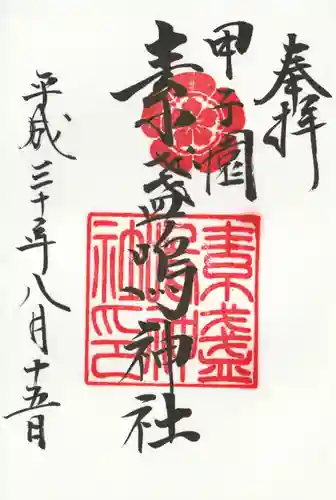 奉拝
甲子園
素盞嗚神社
平成三十年八月十五日
素盞
嗚神
社印